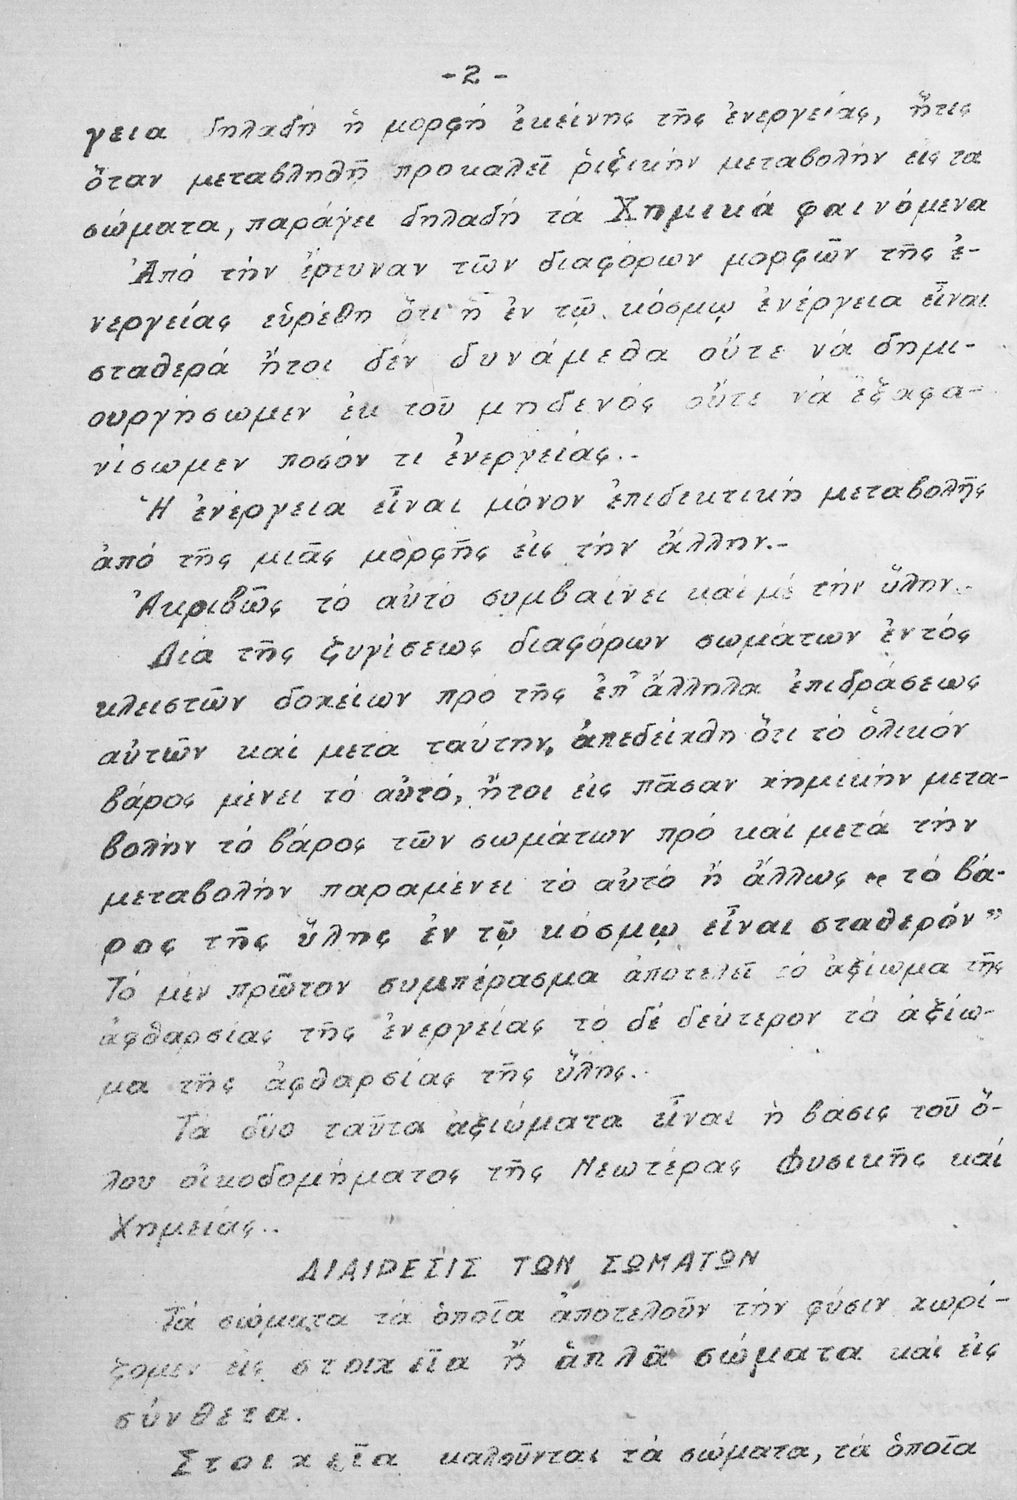 -2-
γεια δηλαδή ἡ μορφή ἐκείνης τῆς ἐνεργείας, ἥτις
ὅταν μεταβληθῇ προκαλεῖ ριζικήν μεταβολήν εἰς τα
σώματα, παράγει δηλαδή τά Χημικά φαινόμενα
Ἀπό τήν ἔρευναν τῶν διαφόρων μορφῶν τῆς ἐ-
νεργείας εὑρέθη ὅτι ἡ ἐν τῷ κόσμῳ ἐνέργεια εἶναι
σταθερά ἤτοι δέν δυνάμεθα οὔτε νά δημι-
ουργήσωμεν ἐκ τοῦ μηδενός οὔτε νά ἐξαφα-
νίσωμεν ποσόν τι ἐνεργείας.-
Ἡ ἐνέργεια εἶναι μόνον ἐπιδεκτική μεταβολῆς
ἀπό τῆς μιᾶς μορφῆς εἰς τήν ἄλλην.-
Ἀκριβῶς τό αὐτό συμβαίνει καί μέ τήν ὕλην.-
Διά τῆς ζυγίσεως διαφόρων σωμάτων ἐντός
κλειστῶν δοχείων πρό τῆς ἐπ' ἄλληλα ἐπιδράσεως
αὐτῶν καί μετα ταύτην, ἀπεδείχθη ὅτι τό ὁλικόν
βάρος μένει τό αὐτό, ἤτοι εἰς πᾶσαν χημικήν μετα-
βολήν τό βάρος τῶν σωμάτων πρό καί μετά τήν
μεταβολήν παραμένει τό αὐτό ἤ ἄλλως "τό βά-
ρος τῆς ὕλης ἐν τῷ κόσμῳ εἶναι σταθερόν"
Τό μέν πρῶτον συμπέρασμα ἀποτελεῖ τό ἀξίωμα τῆς
ἀφθαρσίας τῆς ἐνεργείας τό δέ δεύτερον τό ἀξίω-
μα τῆς ἀφθαρσίας τῆς ὕλης.-
Τά δύο ταῦτα ἀξιώματα εἶναι ἡ βάσις τοῦ ὅ-
λου οἰκοδομήματος τῆς Νεωτέρας Φυσικῆς καί
Χημείας.-
ΔΙΑΙΡΕΣΙΣ ΤΩΝ ΣΩΜΑΤΩΝ
Τά σώματα τά ὁποῖα ἀποτελοῦν τήν φύσιν χωρί-
ζομεν εἰς στοιχεῖα ἤ ἁπλᾶ σώματα καί εἰς
σύνθετα.
Στοιχεῖα καλοῦνται τά σώματα, τά ὁποῖα